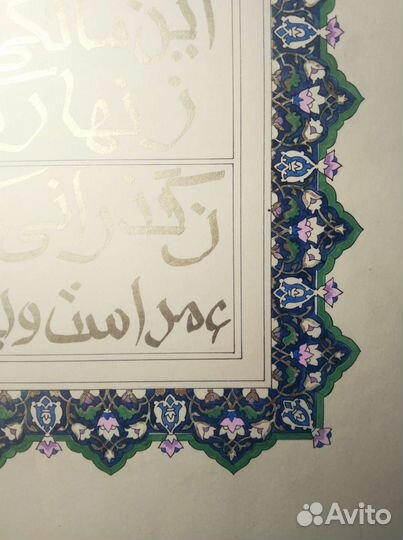 این
زنهار
ن گذرانی
عمر است و
Avito